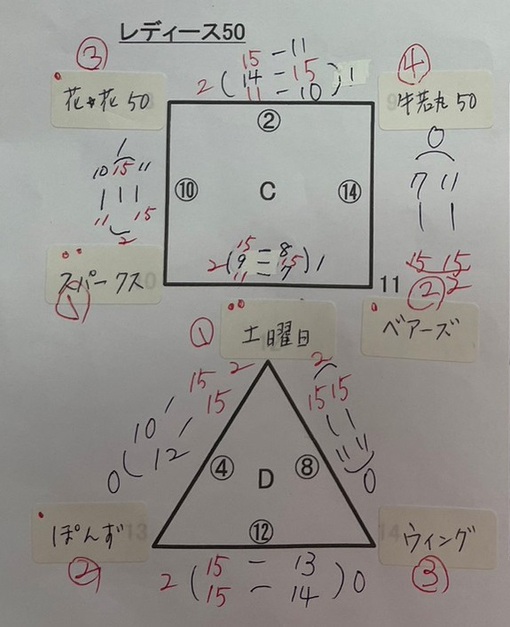 レディース50
③ ④
15 - 11
2 ( 14 - 15 ) 1
11 - 10
花★花 50
牛若丸 50
②
1
10 15 11
11 15
2
⑩ C ⑭
0
7 11
15 15
2
15 - 8
2 ( 9 - 15 ) 1
11 - 7
スパークス
①
11 ②
ベアーズ
① 土曜日
15 2
15
10
12
0
2
15 15
11
0
④ D ⑧
⑫
ぽんず 13
②
14 ウィング
③
2 ( 15 - 13 ) 0
15 - 14